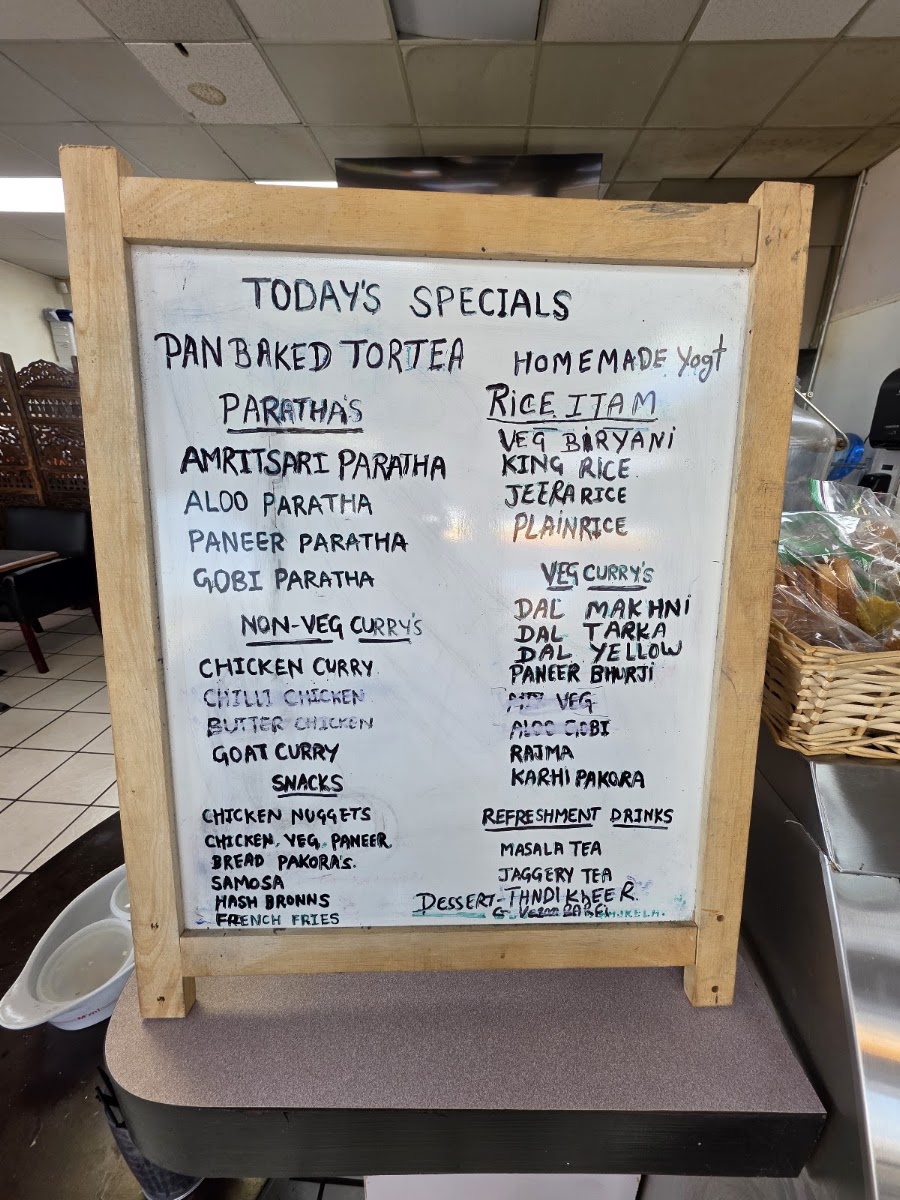 TODAY'S SPECIALS
PAN BAKED TORTEA
PARATHA'S
AMRITSARI PARATHA
ALOO PARATHA
PANEER PARATHA
GOBI PARATHA
NON-VEG CURRY'S
CHICKEN CURRY
CHILLI CHICKEN
BUTTER CHICKEN
GOAT CURRY
SNACKS
CHICKEN NUGGETS
CHICKEN, VEG, PANEER
BREAD PAKORA'S.
SAMOSA
HASH BRONNS
FRENCH FRIES
HOMEMADE Yogt
RICE ITAM
VEG BIRYANI
KING RICE
JEERA RICE
PLAIN RICE
VEG CURRY'S
DAL MAKHNI
DAL TARKA
DAL YELLOW
PANEER BHURJI
VEG
ALOO GOBI
RAJMA
KARHI PAKORA
REFRESHMENT DRINKS
MASALA TEA
JAGGERY TEA
DESSERT-THNDI KhEER